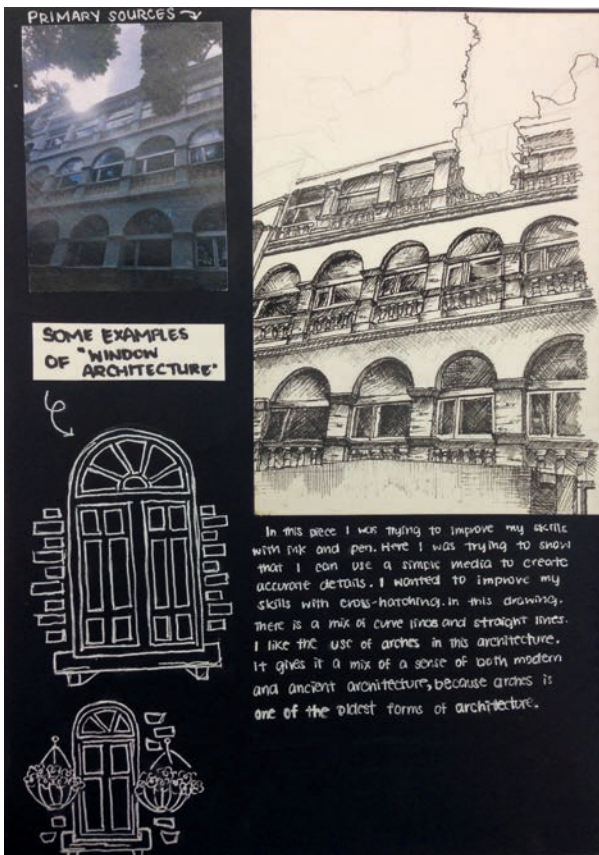 PRIMARY SOURCES
SOME EXAMPLES
OF "WINDOW
ARCHITECTURE"
In this piece I was trying to improve my skills
with ink and pen. Here I was trying to show
that I can use a simple media to create
accurate details. I wanted to improve my
skills with cross-hatching. In this drawing.
There is a mix of curve lines and straight lines.
I like the use of arches in this architecture.
It gives it a mix of a sense of both modern
and ancient architecture, because arches is
one of the oldest forms of architecture.